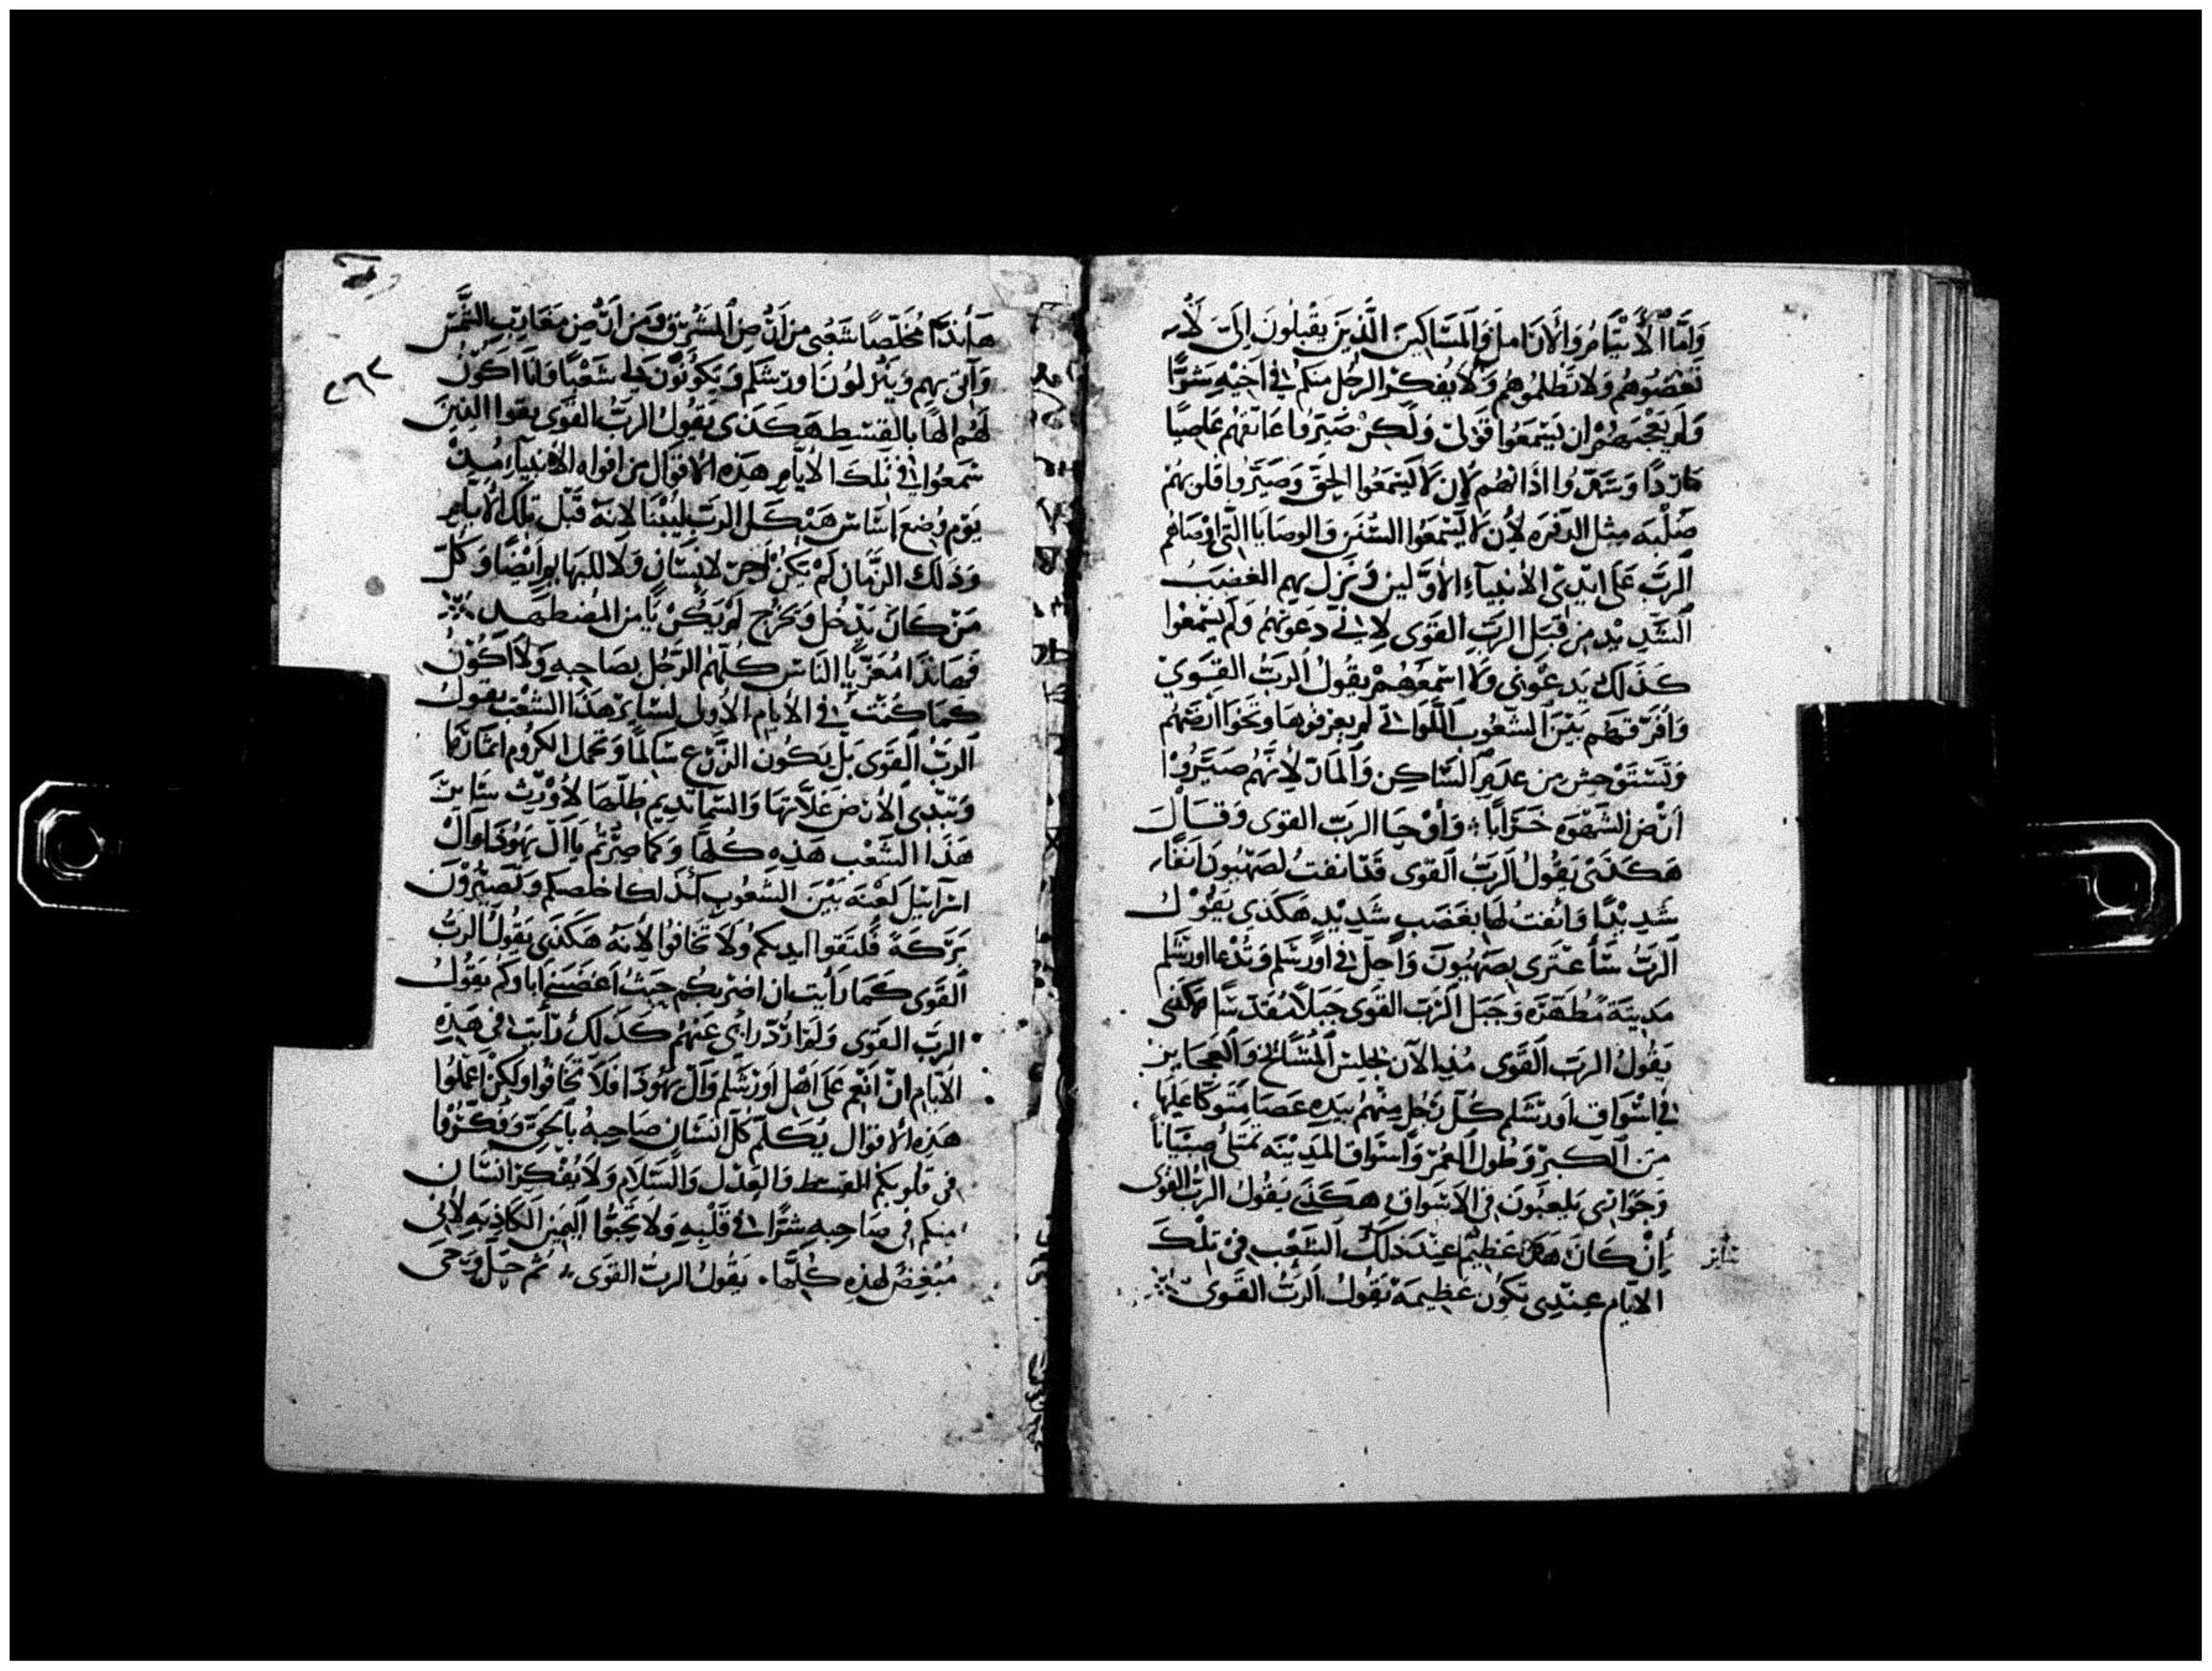 وَأَمَّا الأَيتَامُ وَالأَرَامل وَالمَسَاكِينَ الَّذِينَ يُقبِلُونَ إِلَىَّ لاَ
تغصبُوهُم وَلا تَظْلمُوهُم وَلاَ يُفكر الرجُل منكم فى أخيهِ شرًّا
وَلَم يعْجبهُمْ ان يَسْمَعُوا قَوْلى وَلَكِنْ صَيَّرُوا عَاتقهُم عَاصِيًا
مَاردًا وَسَمَّرُوا اذَانَهُم لأِن لاَ يَسْمَعُوا الحَقَّ وَصَيَّرُوا قلوبَهُمْ
صُلْبَه مِثل الدفره لأِن لاَ يَسْمَعُوا السُّنَن وَالوصَايَا التى اوْصَاهُم
الرَبّ عَلَى ايْدِى الأنبيآءِ الأوَّلِين وَنَزل بِهِم الغَضَبُ
الشَدِيْد مِن قبَل الرَبّ القَوَى لاِنى دَعَوتهُم وَلَم يَسْمَعُوا
كَذَلك يَدعُوَنى وَلاَ اسْمَعهُمْ يَقُولُ الرَبُّ القَوِي
وَافَرّقهُم بَيْنَ الشعُوب اللَّوَاتى لم يعرفوهَا وَتخوَا ارضهُم
وَتَسْتَوْحِش مِن عدَمِ السَّاكِن وَالمَارّ لأنَّهُم صَيَّرُوْا
ارْض الشَهْوَه خَرَابًا ۞ وَأوْحَا الرَبّ القوى وَقَالَ
هَكَذَى يَقُولُ الرَبُّ القوى قَدْ انفتُ لصَهْيُونَ انفًا
شَدِيْدًا وَانفتُ لهَا بغَضَبٍ شَدِيْدٍ هَكَذى يَقُوْلُ
الرَبُّ سَأعْتَرى بِصَهْيُونَ وَأحلّ فى اورشَلِم وَتُدْعَا اورشَلِم
مَدِينَة مُطَهَّرَة وَجَبَل الرَبّ القَوى جَبَلاً مُقدّسًا هكذى
يَقُولُ الرَبّ القَوى مُنذ الآن يجلِسُ المشَائخ وَالعجَايِز
فى اسْوَاق اورشَلِم كُلّ رَجُل مِنْهُم بيَدِهِ عَصَا مُتَوكّئًا عَليهَا
مِنَ الكِبَرْ وَطُول العمُرْ وَاسْوَاق المَدِيْنَه تمتَلى صِبْيَانًا
وَجَوَارى يَلعَبُونَ فى الاَسْوَاق هَكَذَى يَقُولُ الرَبُّ القَوى
إِنْ كَانَ هَذَا عَظِيْمًا عِنْدَ ذَلِكَ الشَعْب فى تِلْكَ
الايَام عِنْدِى تكُون عَظِيمَة يَقُولُ الرَبُّ القَوى ۞
هَأنَذَا مُخَلّصًا شَعْبى مِن ارْض المَشْرِق وَمِن ارْض مَغَارِب الشَّمْسِ
وَآتى بِهِم وَيَنزلوُنَ اورشَلِم وَيَكُونُونَ لى شَعْبًا وَانَا اكُونُ
لهُم الهًا بالقِسْطِ هَكَذَى يَقُولُ الرَبُّ القوى يقوا الذِينَ
سَمعُوا فى تِلكَ الأيَّامِ هَذِه الاقوَال مِن افواه الأنبيَآءِ مُنذُ
يَوْم وُضِعَ اسَاسْ هَيْكَل الرَبّ ليُبْنَا لانهُ قَبْل تِلك الأيَّام
وَذلك الزَمَان لَمْ تكُنْ اجرَة لاِنْسَانٍ وَلا للبهَايمِ ايْضًا وَكُلّ
مَنْ كَانَ يَدْخُل وَيخْرُج لَمْ يَكُنْ يَأمَن المُضْطَهِد ۞
فهَانَذَا مُعَرّيًا النَاس كُلّهُم الرَجُل بصَاحِبهِ وَلاَ اكُونُ
كمَا كُنْتُ فى الأيام الأولى لسَائر هَذَا الشعْب يَقُولُ
الرَبُّ القَوَى بَلْ يَكُون الزَرْع سَالمًا وَتَحْمل الكرُوم اثمَارهَا
وَتبْدى الأرْض غَلاّتهَا وَالسَّمَا تدِيم طَلّهَا لأوْرّث سَائِرَ
هَذَا الشَعْب هَذِه كُلّهَا وَكمَا صِرْتُم يَا آلَ يَهُوذَا وَآلَ
اسْرَآئِيْل لَعْنَه بَيْنَ الشعُوب كذَلك اخلصكم وَتصيرُونَ
بَرَكَةً فلتَقوا ايديكم وَلاَ تخَافوا لأنهُ هَكَذى يَقُولُ الرَبُّ
القَوى كَمَا رَأيت ان اضربكم حَيْثُ اغضَبَنى ابَاوكم يَقُولُ
الرَبُّ القَوى وَلَم ارُدّ رَأيى عَنهُمْ كَذَلكَ رَأيت فى هَذِهِ
الأيَّام انْ انْعِم عَلَى اهْل اورشَلِم وَآل يَهُوذَا فَلاَ تخَافُوا وَلكِنْ اعْمَلُوا
هَذِه الأقوَال يُكَلّم كُلّ انْسَان صَاحِبهُ بالحَقّ وَفكّرُوا
فى قلوبكم القِسط وَالعَدْل وَالسَلاَم وَلاَ يُفْكر انسَان
منكم فى صَاحِبهِ شَرًّا فى قَلْبِهِ وَلا تحبّوا اليَمِين الكَاذِبَه لأنى
مُبْغضٌ لهذِهِ كُلّهَا ۞ يَقُولُ الرَبُّ القوى ۞ ثم حَلّ وَحى